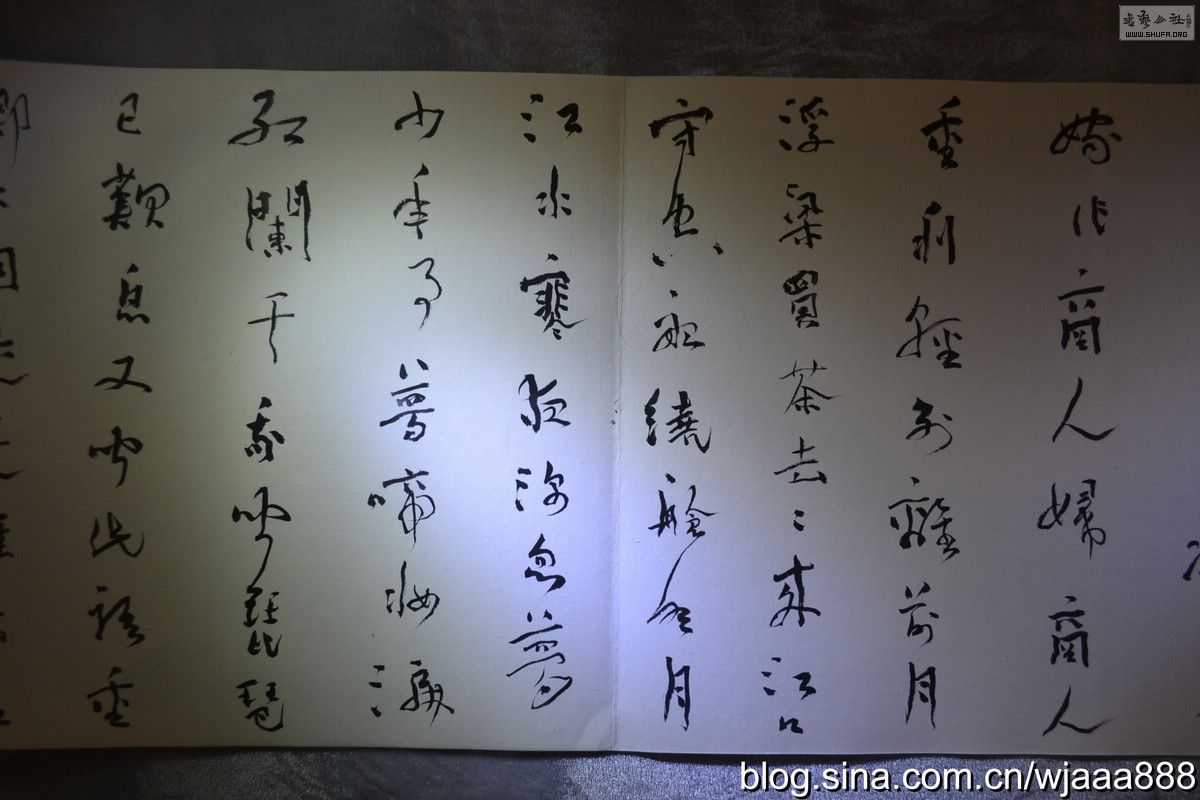 嫁作商人婦商人
重利輕別離前月
浮梁買茶去〻來江口
守空船繞艙明月
江水寒夜深忽夢
少年事夢啼妝淚
紅闌干我聞琵琶
已歎息又聞此語重
WWW.SHUFA.ORG
blog.sina.com.cn/wjaaa888